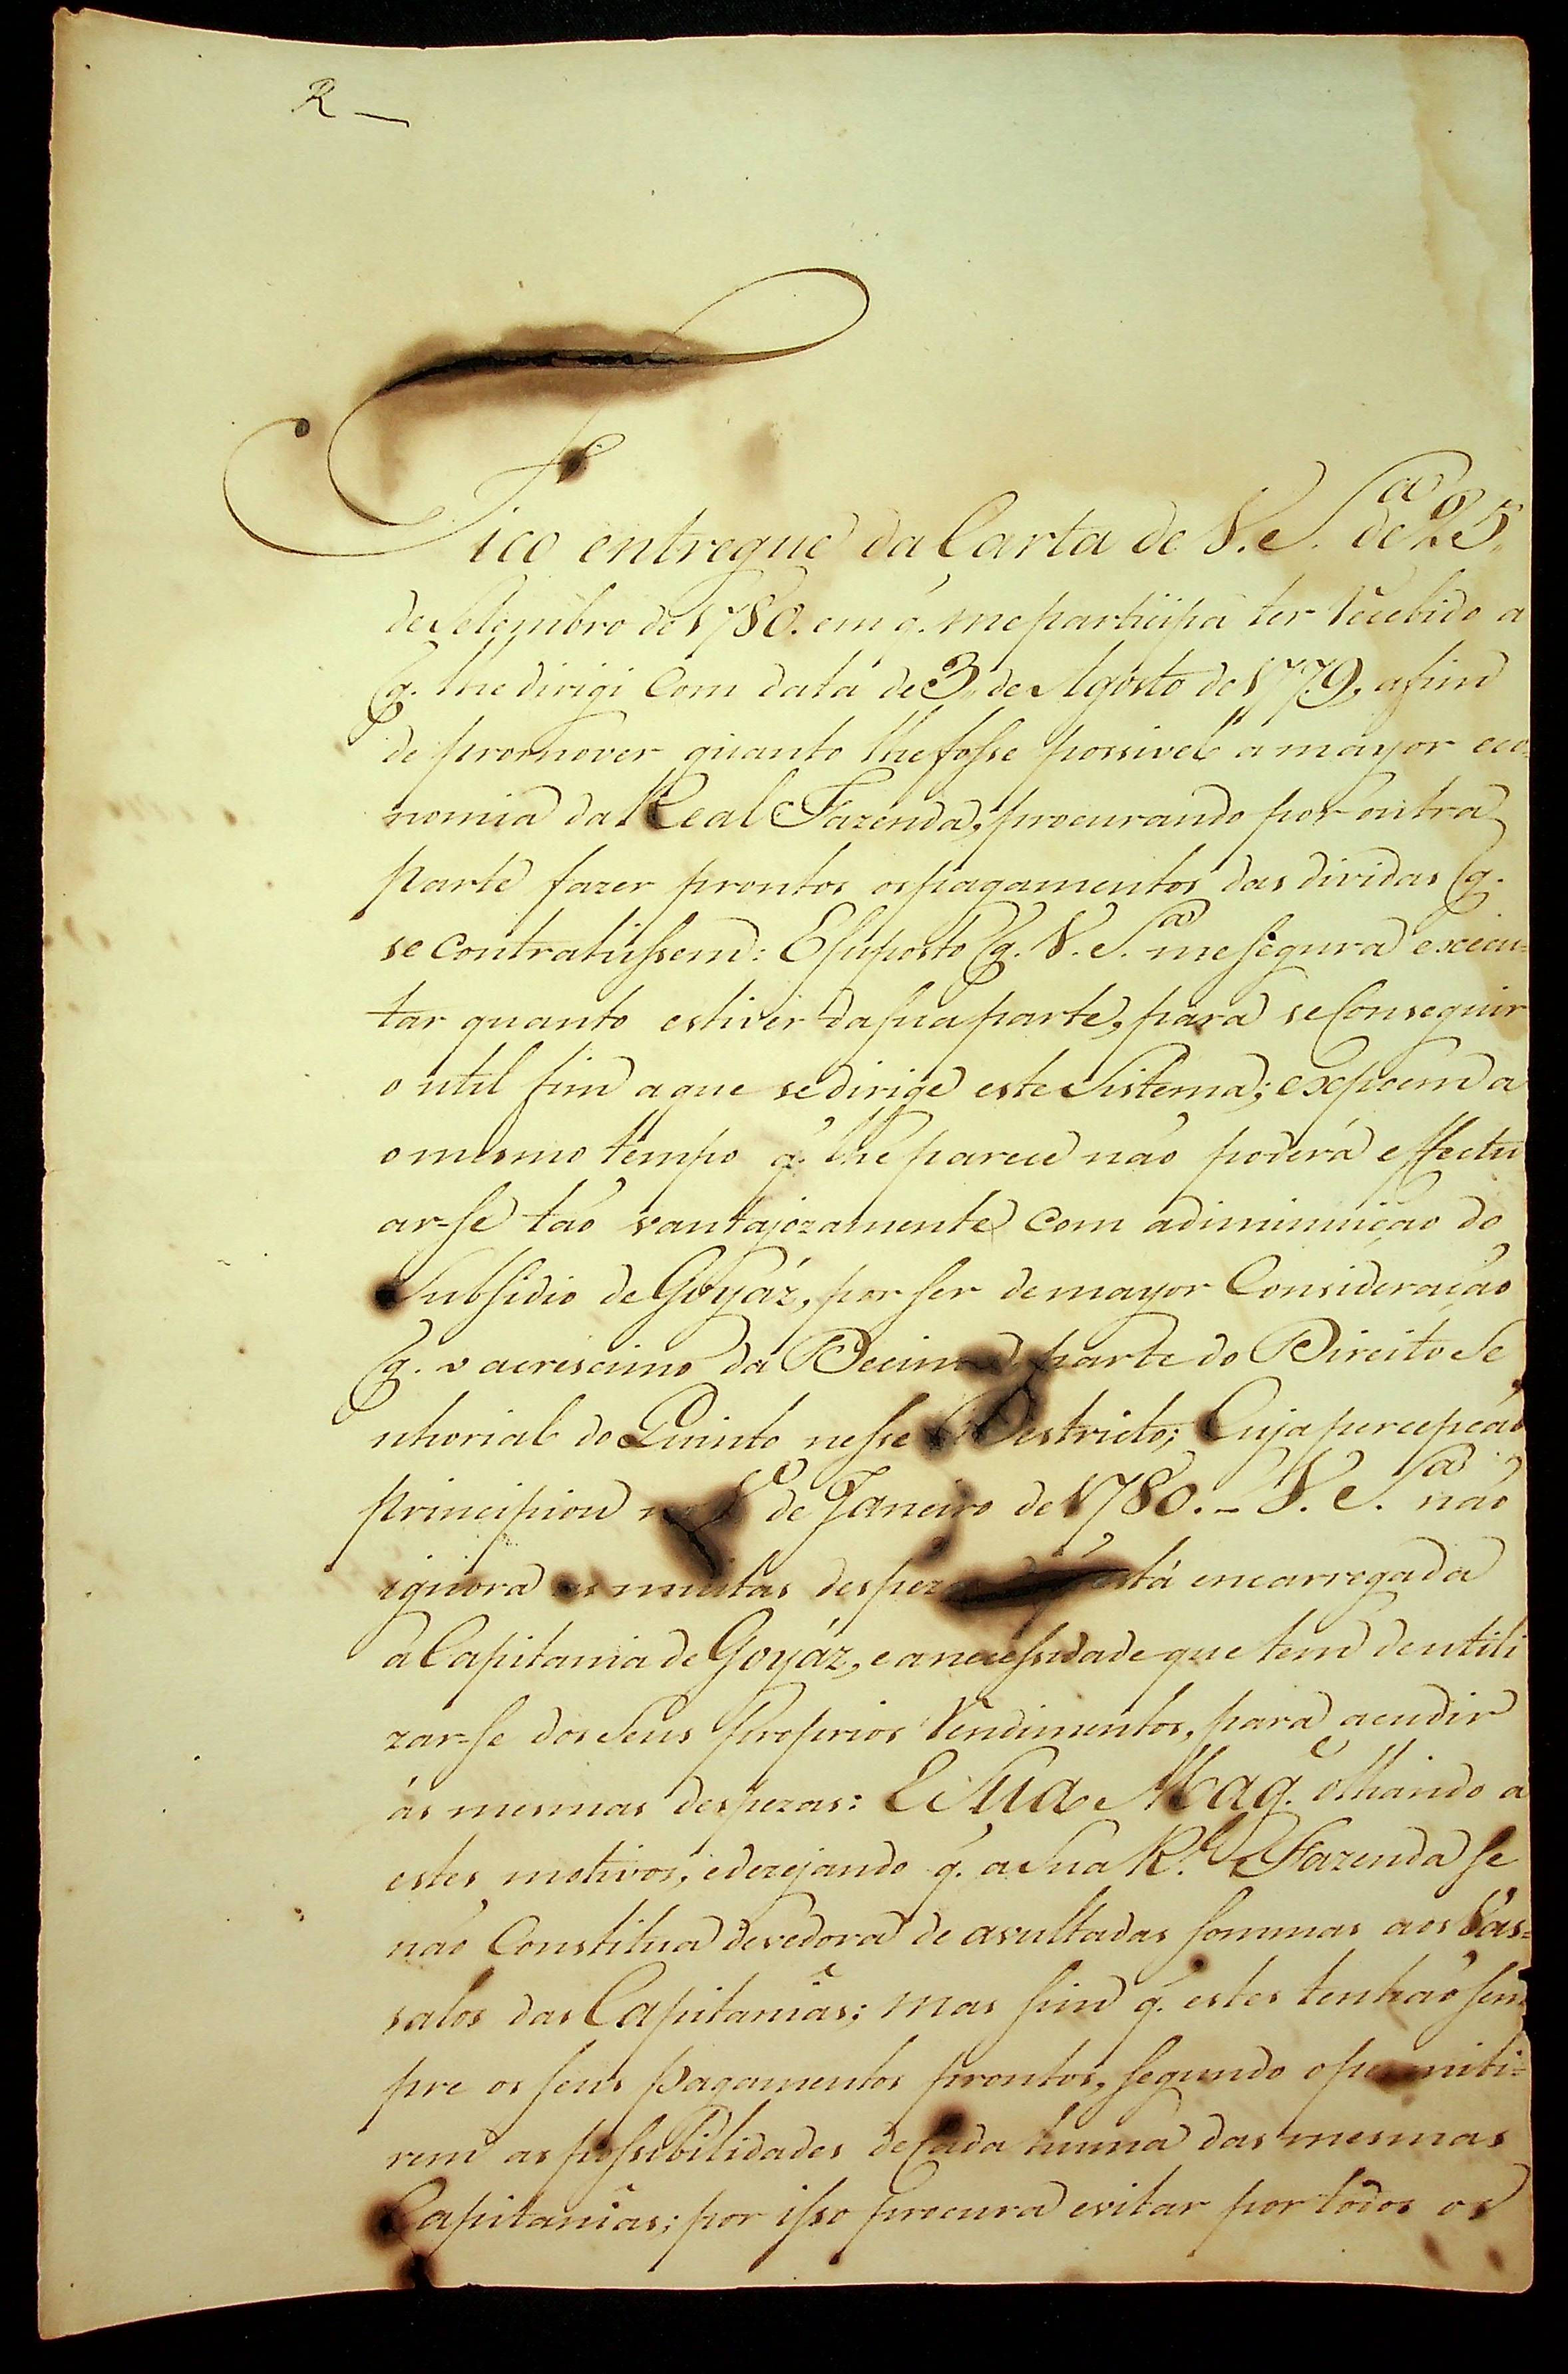 R —
Fico entregue da Carta de V. S.ª de 25,,
de Setembro de 1780. em q. me participa ter recebido a
q. lhe dirigi com data de 3,, de Agosto de 1779, a fim
de promover quanto lhe fosse possivel a mayor eco-
nomia da Real Fazenda, procurando por outra
parte fazer prontos os pagamentos das dividas q.
se contratussem: E suposto q. V. S.ª me segura execu-
tar quanto estiver da sua parte, para se conseguir
o util fim a que se dirige este Sistema; expoem a
o mesmo tempo q. lhe parece não poderá effectu
ar-se tão vantajozamente com a diminuição do
Subsidio de Goyáz, por ser de mayor Consideração
q. o acrescimo da Decima parte do Direito Se
nhorial do Quinto nesse Destricto; Cuja percepção
principiou no 1.º de Janeiro de 1780. – V. S.ª não
ignora as muitas despezas de q. está encarregada
a Capitania de Goyáz, e a necessidade que tem de utili
zar-se dos seus proprios rendimentos, para acudir
ás mesmas despezas: E Sua Mag.e olhando a
estes motivos, e dezejando q. a Sua R.l Fazenda se
não Constitua devedora de avultadas sommas aos Vas-
salos das Capitanîas; mas sim q. estes tenhão sem
pre os seus pagamentos prontos, segundo o permiti-
rem as possibilidades de Cada huma das mesmas
Capitanîas; por isso procura evitar por todos os